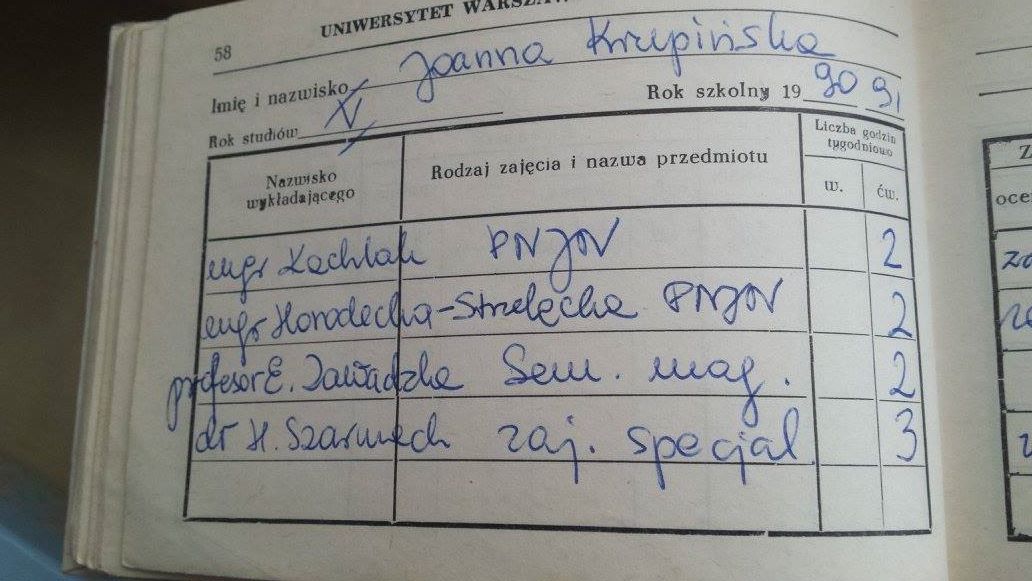 58
UNIWERSYTET WARSZAW
Imię i nazwisko Joanna Krupińska
Rok studiów V Rok szkolny 19 90 91
Nazwisko wykładającego
Rodzaj zajęcia i nazwa przedmiotu
Liczba godzin tygodniowo
w. ćw.
mgr Kochlak PNJN 2
mgr Horodecka-Strzelecka PNJN 2
profesor E. Zawadzka Sem. mag. 2
dr H. Szarmach zaj. specjal. 3
Z
oce